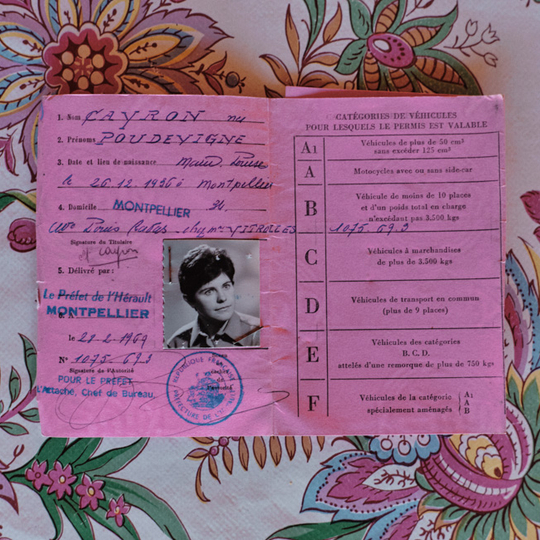 1. Nom CAYRON née
2. Prénoms POUDEVIGNE
3. Date et lieu de naissance Marie Louise
le 26.12.1936 à Montpellier
4. Domicile MONTPELLIER 34.
VIGNOLLES
Signature du Titulaire
Cayron
5. Délivré par :
Le Préfet de l'Hérault
MONTPELLIER
le 21-2-1969
N° 1075.693
Signature de l'Autorité
POUR LE PREFET
L'Attaché, Chef de Bureau,
REPUBLIQUE FRANÇAISE
PREFECTURE DE L'HERAULT
CATÉGORIES DE VÉHICULES
POUR LESQUELS LE PERMIS EST VALABLE
A1 Véhicules de plus de 50 cm³
sans excéder 125 cm³
A Motocycles avec ou sans side-car
B Véhicule de moins de 10 places
et d'un poids total en charge
n'excédant pas 3.500 kgs
1075.693
C Véhicules à marchandises
de plus de 3.500 kgs
D Véhicules de transport en commun
(plus de 9 places)
E Véhicules des catégories
B. C. D.
attelés d'une remorque de plus de 750 kgs
F Véhicules de la catégorie
spécialement aménagés
A1
A
B